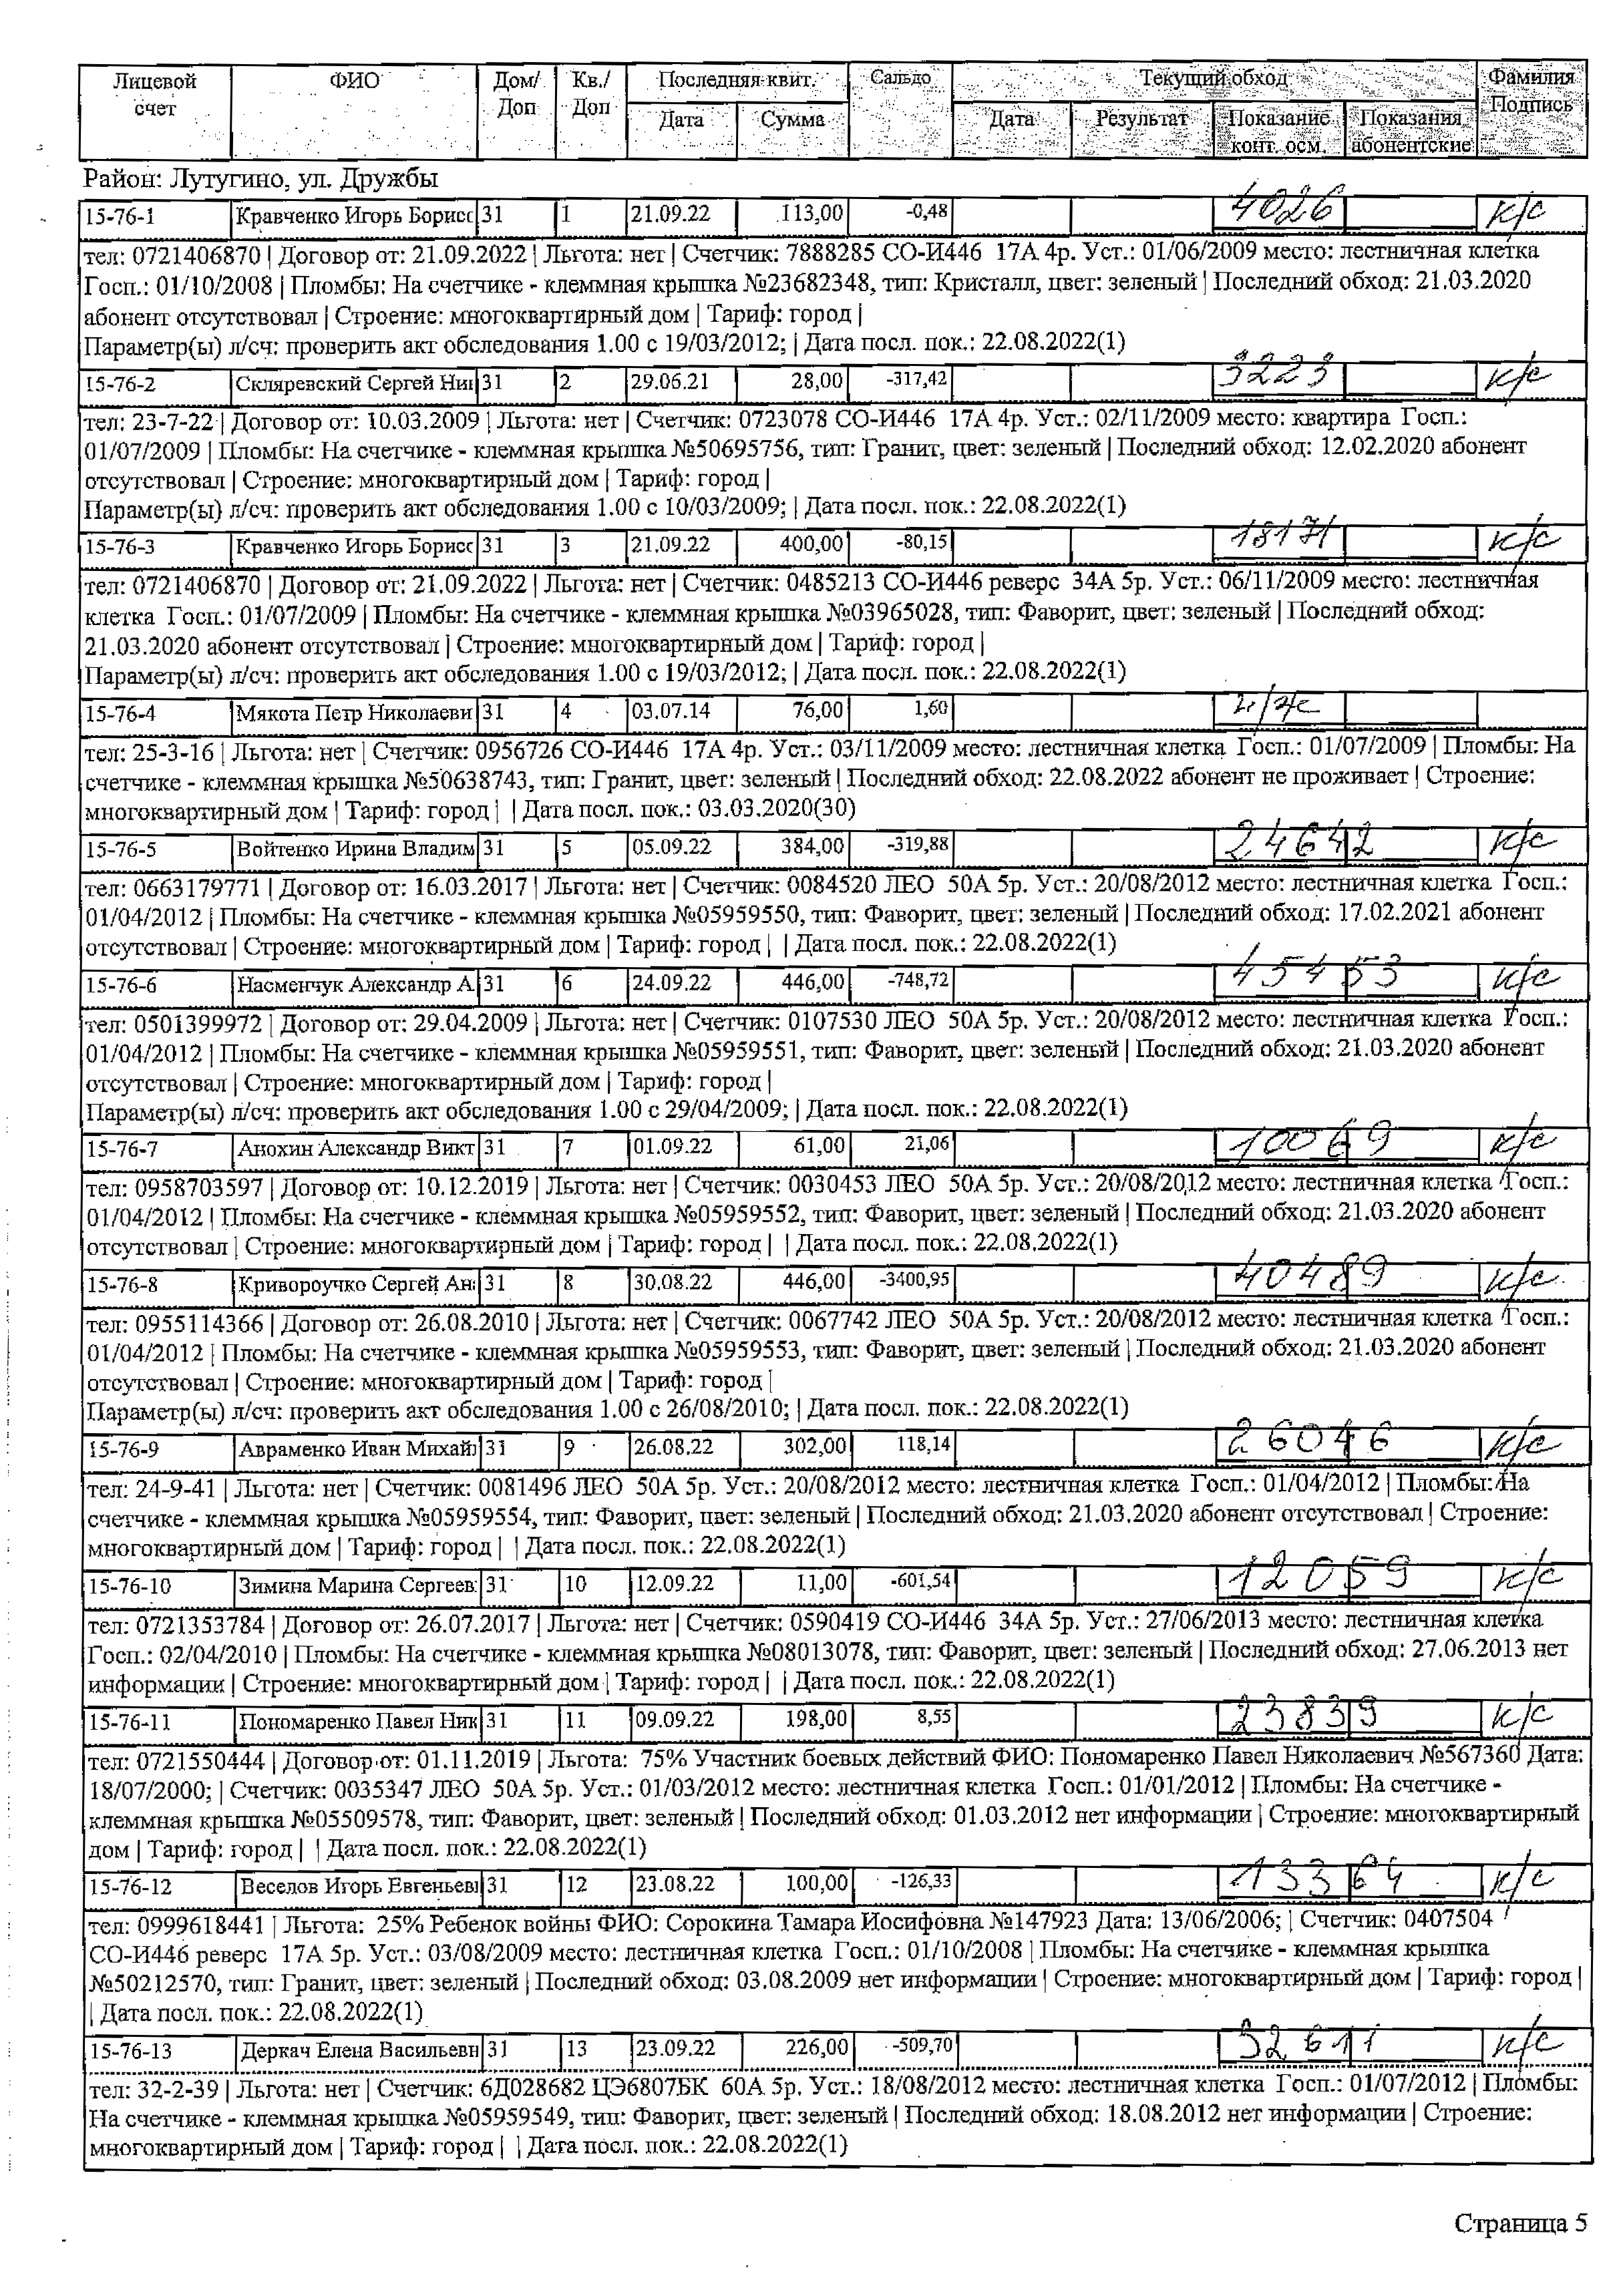 Лицевой счет ФИО Дом/ Доп Кв./ Доп Последняя квит. Сальдо Текущий обход Фамилия Подпись
Дата Сумма Дата Результат Показание конт. осм. Показания абонентские
Район: Лутугино, ул. Дружбы
15-76-1 Кравченко Игорь Борисс 31 1 21.09.22 113,00 -0,48 4026 к/с
тел: 0721406870 | Договор от: 21.09.2022 | Льгота: нет | Счетчик: 7888285 СО-И446 17А 4р. Уст.: 01/06/2009 место: лестничная клетка
Госп.: 01/10/2008 | Пломбы: На счетчике - клеммная крышка №23682348, тип: Кристалл, цвет: зеленый | Последний обход: 21.03.2020
абонент отсутствовал | Строение: многоквартирный дом | Тариф: город |
Параметр(ы) л/сч: проверить акт обследования 1.00 с 19/03/2012; | Дата посл. пок.: 22.08.2022(1)
15-76-2 Скляревский Сергей Ни 31 2 29.06.21 28,00 -317,42 3223 к/с
тел: 23-7-22 | Договор от: 10.03.2009 | Льгота: нет | Счетчик: 0723078 СО-И446 17А 4р. Уст.: 02/11/2009 место: квартира Госп.:
01/07/2009 | Пломбы: На счетчике - клеммная крышка №50695756, тип: Гранит, цвет: зеленый | Последний обход: 12.02.2020 абонент
отсутствовал | Строение: многоквартирный дом | Тариф: город |
Параметр(ы) л/сч: проверить акт обследования 1.00 с 10/03/2009; | Дата посл. пок.: 22.08.2022(1)
15-76-3 Кравченко Игорь Борисс 31 3 21.09.22 400,00 -80,15 18171 к/с
тел: 0721406870 | Договор от: 21.09.2022 | Льгота: нет | Счетчик: 0485213 СО-И446 реверс 34А 5р. Уст.: 06/11/2009 место: лестничная
клетка Госп.: 01/07/2009 | Пломбы: На счетчике - клеммная крышка №03965028, тип: Фаворит, цвет: зеленый | Последний обход:
21.03.2020 абонент отсутствовал | Строение: многоквартирный дом | Тариф: город |
Параметр(ы) л/сч: проверить акт обследования 1.00 с 19/03/2012; | Дата посл. пок.: 22.08.2022(1)
15-76-4 Мякота Петр Николаеви 31 4 03.07.14 76,00 1,60
тел: 25-3-16 | Льгота: нет | Счетчик: 0956726 СО-И446 17А 4р. Уст.: 03/11/2009 место: лестничная клетка Госп.: 01/07/2009 | Пломбы: На
счетчике - клеммная крышка №50638743, тип: Гранит, цвет: зеленый | Последний обход: 22.08.2022 абонент не проживает | Строение:
многоквартирный дом | Тариф: город | | Дата посл. пок.: 03.03.2020(30)
15-76-5 Войтенко Ирина Владим 31 5 05.09.22 384,00 -319,88 24642 к/с
тел: 0663179771 | Договор от: 16.03.2017 | Льгота: нет | Счетчик: 0084520 ЛЕО 50А 5р. Уст.: 20/08/2012 место: лестничная клетка Госп.:
01/04/2012 | Пломбы: На счетчике - клеммная крышка №05959550, тип: Фаворит, цвет: зеленый | Последний обход: 17.02.2021 абонент
отсутствовал | Строение: многоквартирный дом | Тариф: город | | Дата посл. пок.: 22.08.2022(1)
15-76-6 Насменчук Александр А 31 6 24.09.22 446,00 -748,72 45453 к/с
тел: 0501399972 | Договор от: 29.04.2009 | Льгота: нет | Счетчик: 0107530 ЛЕО 50А 5р. Уст.: 20/08/2012 место: лестничная клетка Госп.:
01/04/2012 | Пломбы: На счетчике - клеммная крышка №05959551, тип: Фаворит, цвет: зеленый | Последний обход: 21.03.2020 абонент
отсутствовал | Строение: многоквартирный дом | Тариф: город |
Параметр(ы) л/сч: проверить акт обследования 1.00 с 29/04/2009; | Дата посл. пок.: 22.08.2022(1)
15-76-7 Анохин Александр Викт 31 7 01.09.22 61,00 21,06 10069 к/с
тел: 0958703597 | Договор от: 10.12.2019 | Льгота: нет | Счетчик: 0030453 ЛЕО 50А 5р. Уст.: 20/08/2012 место: лестничная клетка Госп.:
01/04/2012 | Пломбы: На счетчике - клеммная крышка №05959552, тип: Фаворит, цвет: зеленый | Последний обход: 21.03.2020 абонент
отсутствовал | Строение: многоквартирный дом | Тариф: город | | Дата посл. пок.: 22.08.2022(1)
15-76-8 Кривороучко Сергей Ан 31 8 30.08.22 446,00 -3400,95 40489 к/с
тел: 0955114366 | Договор от: 26.08.2010 | Льгота: нет | Счетчик: 0067742 ЛЕО 50А 5р. Уст.: 20/08/2012 место: лестничная клетка Госп.:
01/04/2012 | Пломбы: На счетчике - клеммная крышка №05959553, тип: Фаворит, цвет: зеленый | Последний обход: 21.03.2020 абонент
отсутствовал | Строение: многоквартирный дом | Тариф: город |
Параметр(ы) л/сч: проверить акт обследования 1.00 с 26/08/2010; | Дата посл. пок.: 22.08.2022(1)
15-76-9 Авраменко Иван Михай 31 9 26.08.22 302,00 118,14 26046 к/с
тел: 24-9-41 | Льгота: нет | Счетчик: 0081496 ЛЕО 50А 5р. Уст.: 20/08/2012 место: лестничная клетка Госп.: 01/04/2012 | Пломбы: На
счетчике - клеммная крышка №05959554, тип: Фаворит, цвет: зеленый | Последний обход: 21.03.2020 абонент отсутствовал | Строение:
многоквартирный дом | Тариф: город | | Дата посл. пок.: 22.08.2022(1)
15-76-10 Зимина Марина Сергеев 31 10 12.09.22 11,00 -601,54 12059 к/с
тел: 0721353784 | Договор от: 26.07.2017 | Льгота: нет | Счетчик: 0590419 СО-И446 34А 5р. Уст.: 27/06/2013 место: лестничная клетка
Госп.: 02/04/2010 | Пломбы: На счетчике - клеммная крышка №08013078, тип: Фаворит, цвет: зеленый | Последний обход: 27.06.2013 нет
информации | Строение: многоквартирный дом | Тариф: город | | Дата посл. пок.: 22.08.2022(1)
15-76-11 Пономаренко Павел Ник 31 11 09.09.22 198,00 8,55 23839 к/с
тел: 0721550444 | Договор от: 01.11.2019 | Льгота: 75% Участник боевых действий ФИО: Пономаренко Павел Николаевич №567360 Дата:
18/07/2000; | Счетчик: 0035347 ЛЕО 50А 5р. Уст.: 01/03/2012 место: лестничная клетка Госп.: 01/01/2012 | Пломбы: На счетчике -
клеммная крышка №05509578, тип: Фаворит, цвет: зеленый | Последний обход: 01.03.2012 нет информации | Строение: многоквартирный
дом | Тариф: город | | Дата посл. пок.: 22.08.2022(1)
15-76-12 Веселов Игорь Евгеньев 31 12 23.08.22 100,00 -126,33 13364 к/с
тел: 0999618441 | Льгота: 25% Ребенок войны ФИО: Сорокина Тамара Иосифовна №147923 Дата: 13/06/2006; | Счетчик: 0407504
СО-И446 реверс 17А 5р. Уст.: 03/08/2009 место: лестничная клетка Госп.: 01/10/2008 | Пломбы: На счетчике - клеммная крышка
№50212570, тип: Гранит, цвет: зеленый | Последний обход: 03.08.2009 нет информации | Строение: многоквартирный дом | Тариф: город |
| Дата посл. пок.: 22.08.2022(1)
15-76-13 Деркач Елена Васильевн 31 13 23.09.22 226,00 -509,70 32611 к/с
тел: 32-2-39 | Льгота: нет | Счетчик: 6Д028682 ЦЭ6807БК 60А 5р. Уст.: 18/08/2012 место: лестничная клетка Госп.: 01/07/2012 | Пломбы:
На счетчике - клеммная крышка №05959549, тип: Фаворит, цвет: зеленый | Последний обход: 18.08.2012 нет информации | Строение:
многоквартирный дом | Тариф: город | | Дата посл. пок.: 22.08.2022(1)
Страница 5